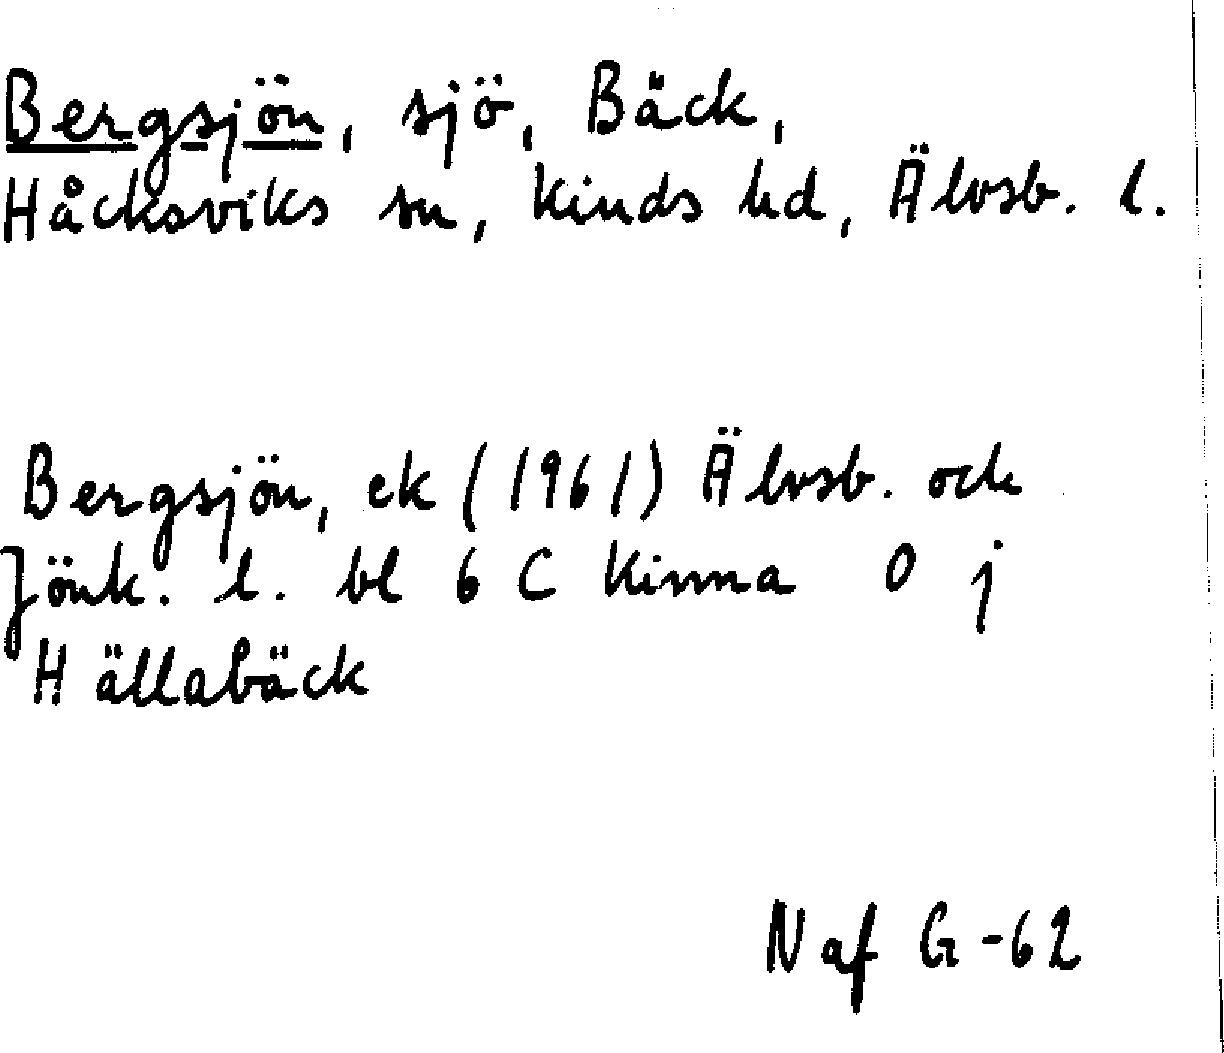 Bergsjön, sjö, Bäck,
Håcksviks sn, Kinds hd, Älvsb. l.
Bergsjön, ek (1961) Älvsb. och
Jönk. l. bl 6 C Kinna 0 j
Hällabäck
Naf G-62